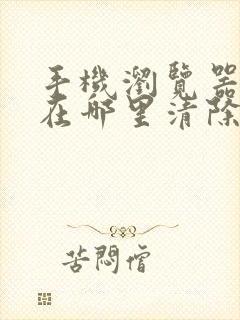 手機瀏覽器
在哪里清除
苦悶僧